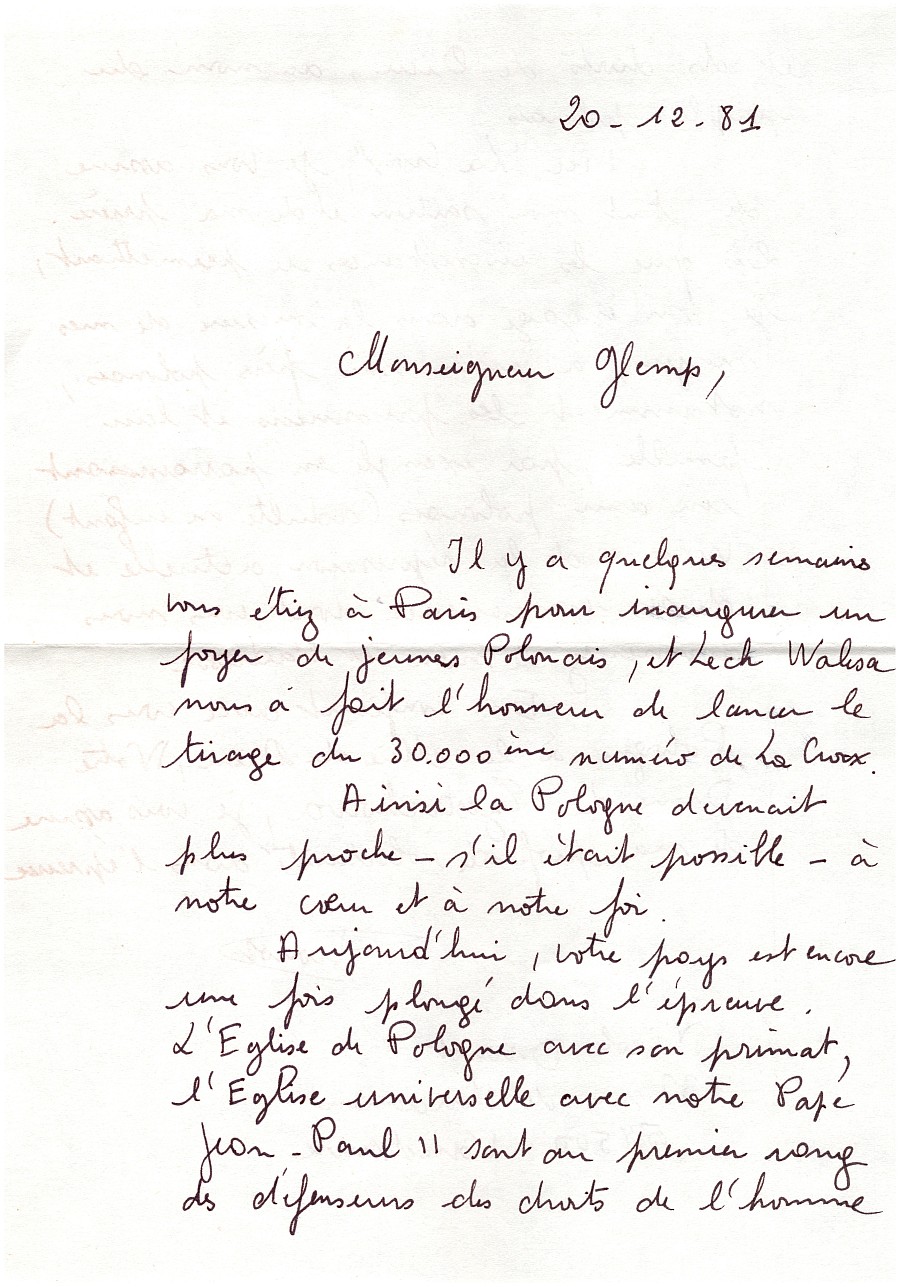 20-12-81
Monseigneur Glemp,
Il y a quelques semaines
vous étiez à Paris pour inaugurer un
foyer de jeunes Polonais, et Lech Walesa
nous à fait l'honneur de lancer le
tirage du 30.000ème numéro de La Croix.
Ainsi la Pologne devenait
plus proche – s'il était possible – à
notre cœur et à notre foi.
Aujourd'hui, votre pays est encore
une fois plongé dans l'épreuve.
L'Eglise de Pologne avec son primat,
l'Eglise universelle avec notre Pape
Jean-Paul II sont au premier rang
des défenseurs des droits de l'homme